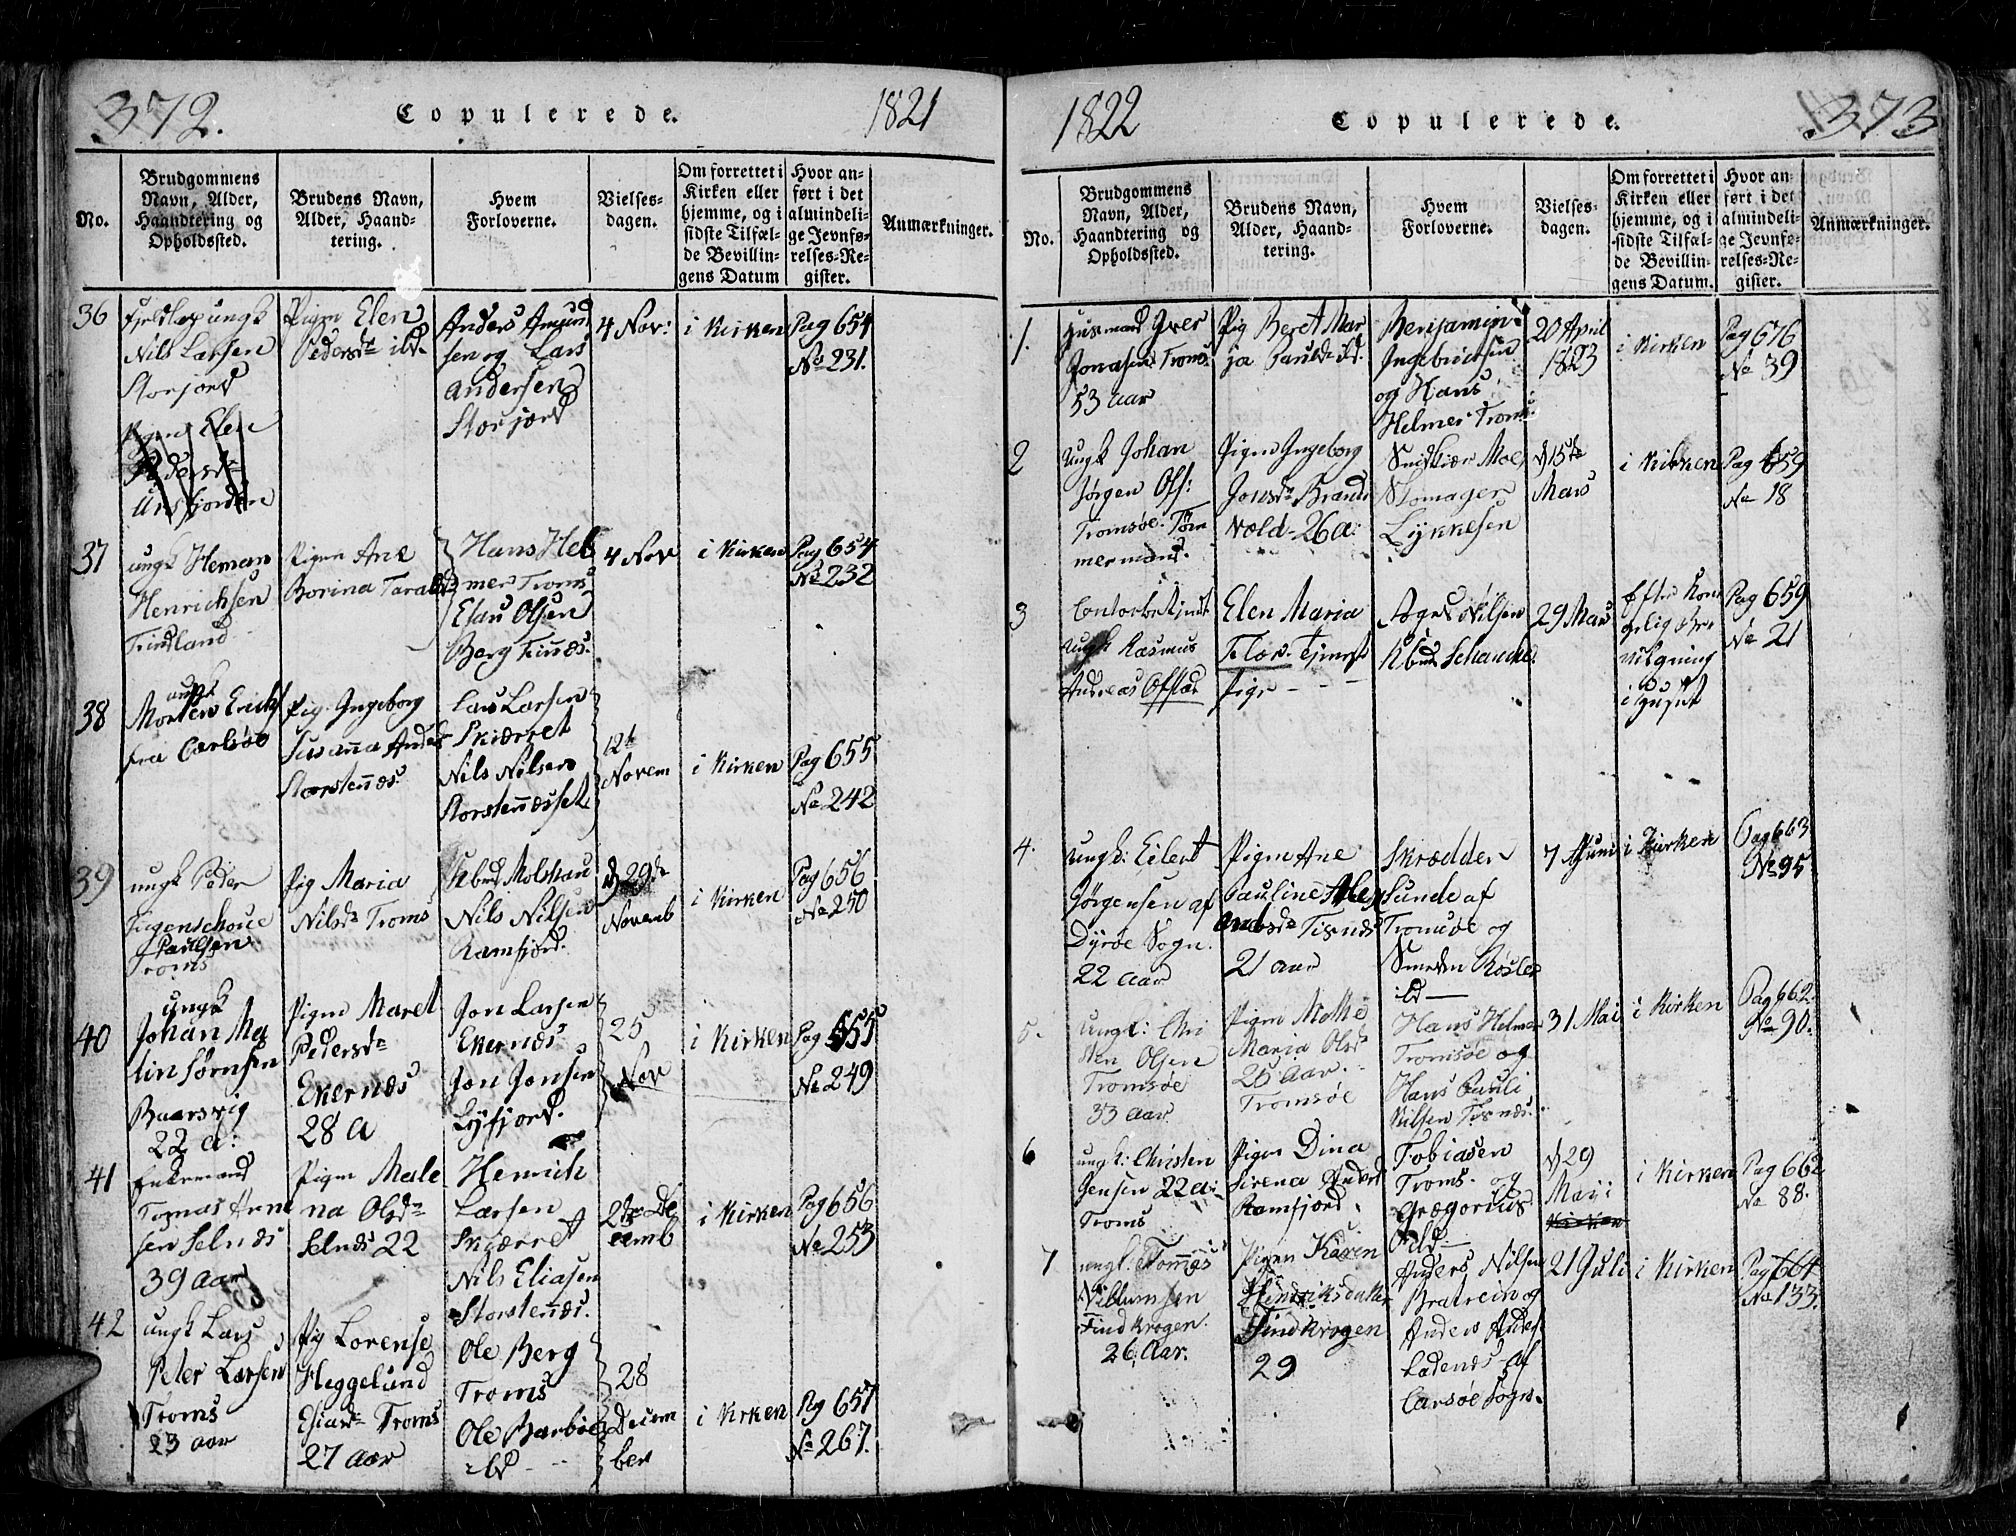 372.
Copulerede.
1821
No.
Brudgommens
Navn, Alder,
Haandtering og
Opholdssted.
Brudens Navn,
Alder, Haand-
tering.
Hvem
Forloverne.
Vielses-
dagen.
Om forrettet i
Kirken eller
hjemme, og i
sidste Tilfæl-
de Bevillin-
gens Datum
Hvor an-
ført i det
almindeli-
ge Jevnfø-
relses-Re-
gister.
Anmærkninger.
36
ungk
Nils Larsen
Storjord
Pigen Elen
Pedersdr ibd.
Anders Amund
sen og Lars
Andersen
Storjord
4 Nov:
i Kirken
Pag 654
No 231.
Pigen Elen
Pedersdr
37
ungk Heman
Henrichsen
Tindland
Pigen Ane
Borina Tarald
Hans Hel
mer Troms
Esau Olsen
Berg Tisnæs.
4 Nov
i Kirken
Pag 654
No 232
38
ungk
Morten Erichs
fra Carlsøe
Pig Ingeborg
Susanna Anders
Storstennæs
Lars Larsen
Skierret
Nils Nilsen
Storstennæsset
12te
Novem
i Kirken
Pag 655
No 242
39
ungk Peder
Paulsen
Troms
Pig Maria
Nilsdr Troms
Nils Nilsen
Ramfjord.
d 29de
Novemb
i Kirken
Pag 656
No 250
40
ungk
Johan Ma
tin Sörnsen
Baarsvig
22 a:
Pigen Maret
Pedersdr
Ekernæs
28 a
Jon Larsen
Ekernæs
Jon Jonsen
Lyfjord.
25
Nov
i Kirken
Pag 655
No 249
41
Enkemand
Tomas Arne
sen Selnæs
39 aar
Pigen Male
na Olsdr
Selnæs 22
Henrich
Larsen
Skierret
Nils Eliasen
Storstennæs.
2den De
cemb
i Kirken
Pag 656
No 253
42
ungk Lars
Peter Larsen
Troms
23 aar
Pig Lorense
Heggelund
Esiasdr Troms
27 aar
Ole Berg
Troms
Ole Barbøe
ibd
28
Decem
ber
i Kirken
Pag 657
No 267.
1822
Copulerede.
373
No.
Brudgommens
Navn, Alder,
Haandtering og
Opholdssted.
Brudens Navn,
Alder, Haand-
tering.
Hvem
Forloverne.
Vielses-
dagen.
Om forrettet i
Kirken eller
hjemme, og i
sidste Tilfæl-
de Bevillin-
gens Datum.
Hvor an-
ført i det
almindeli-
ge Jevnfø-
relses-Re-
gister.
Anmærkninger.
1.
Husmand Iver
Jonasen Troms
53 aar
Pig Beret Mar
ja Paulsdr ibd.
Benjamin
Ingebrictsen
og Hans
Helmer Troms
20 April
1823
i Kirken
Pag 676
No 39
2
Ungk Johan
Jørgen Ols:
Tromsøe. Tøm
mermand.
Pigen Ingeborg
Jonsdr Brands
Vold - 26 a:
Snidkier Moe
Skomager
Lykkesen
d 15de
Mars
i Kirken
Pag 659
No 18
3
Ungk Rasmus
Andreas Ofstad
Elen Maria
Flor. Tjeneste
Pige
Nilsen
Schancke.
29 Mars
Efter Kon
gelig Be
vilgning
i Huset
Pag 659
No 21
4.
Ungk: Eilert
Jørgensen af
Dyrøe Sogn.
22 aar
Pigen Ane
Pauline Alex
andersdr Tisnæs
21 aar
Skrædder
Sunde af
Tromsøe og
Smeden Røsler
ibd
7 Juni
i Kirken
Pag 663
No 95
5.
Ungk: Chri
sten Olsen
Tromsøe
33 aar
Pigen Molle
Maria Olsdr
25 aar.
Tromsøe
Hans Helmer
Tromsøe og
Hans Pauli
Nilsen Tisnæs.
31 Mai
i Kirken
Pag 662.
No 90.
6
ungk: Christen
Jensen 22 a:
Troms
Pigen Dina
Sirena Anders
Ramfjord.
Tobiasen
Troms. og
Grægorius
ibd
d 29
Maji
Kirken
i Kirken
Pag 662
No 88.
7
ungk. Tommas
Villumsen
Findkrogen.
26 Aar.
Pigen Karen
Hendriksdatter
Findkrogen
29
Anders Nilsen
Bratrein og
Anders Anders
Ladenæs af
Carsøe Sogn.
21 Juli
i Kirken
Pag 664
No 133.